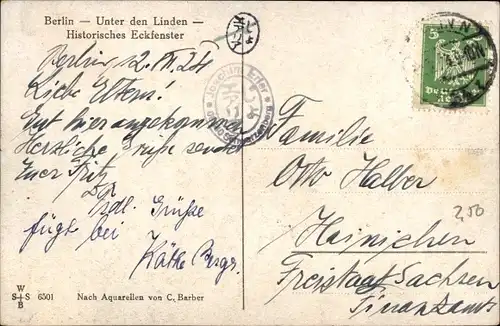 Berlin — Unter den Linden —
Historisches Eckfenster
Berlin 12. VI. 24
Liebe Eltern!
Gut hier angekommen
Herzliche Grüße sendet
Euer Fritz
Frdl. Grüße
fügt bei
Käthe Berger
Familie
Otto Halber
Hainichen
Freistaat Sachsen
Finanzamt
2,50
5
Joachim Erler
W
S+S 6501
B
Nach Aquarellen von C. Barber